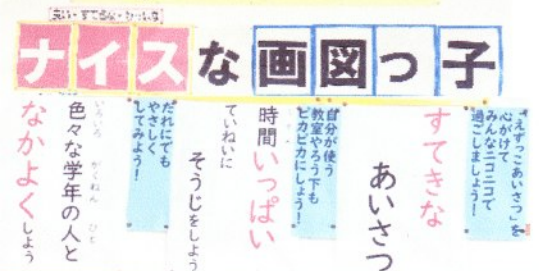 ナイスな画図っ子
「えずっこあいさつ」を
心がけて
みんなニコニコで
過ごしましょう！
すてきな
あいさつ
自分が使う
教室やろう下も
ピカピカにしょう！
時間いっぱい
ていねいに
そうじをしよう
だれにでも
やさしく
してみよう！
いろいろ がくねん ひと
色々な学年の人と
なかよくしよう